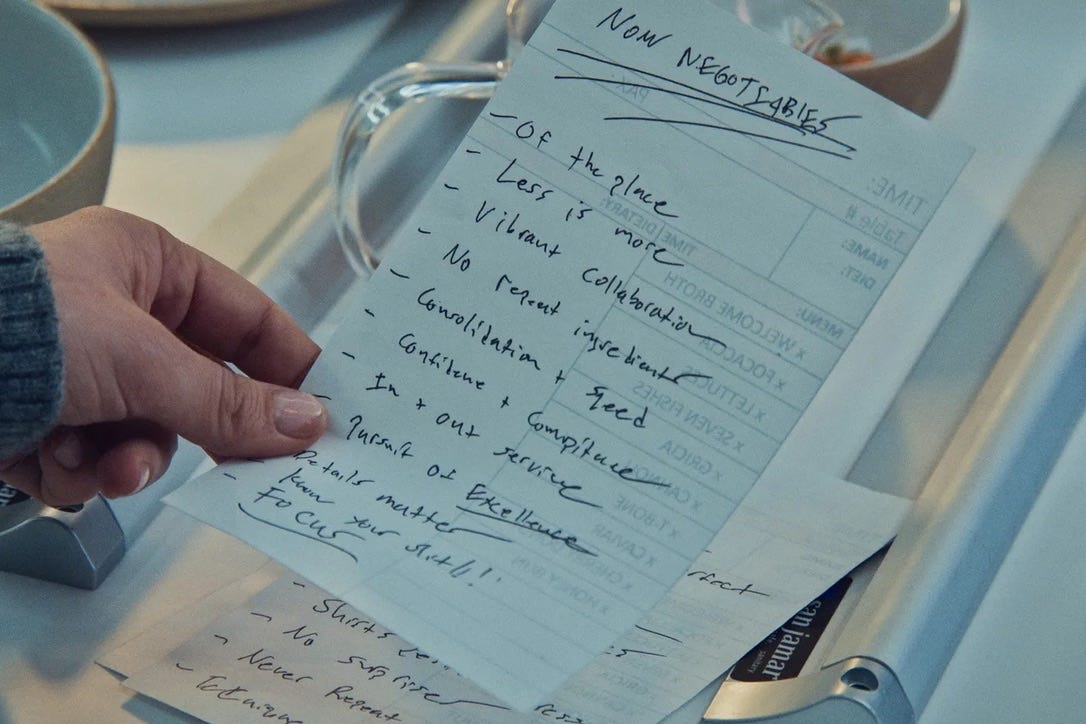 NON NEGOTIABLES
- Of the place
- Less is more
- Vibrant Collaboration
- No repeat ingredients
- Consolidation + Speed
- Confidence + Competence
- In + out service
- Pursuit of Excellence
- Details matter
- know your shit!!!
FOCUS
PAX:
TIME:
Table #
NAME:
DIET:
TIME | DIETARY:
MENU:
x WELCOME BROTH
x FOCACCIA
x LETTUCES
x SEVEN FISHES
x GRICIA
x T-BONE
x CAVIAR
- Shirts
- No surprises
- Never Repeat
san jamar